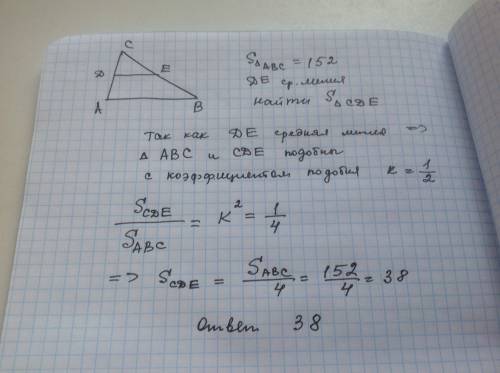 C
D E
A B
S△ABC = 152
DE ср. линия
найти S△CDE
Так как DE средняя линия =>
△ ABC и CDE подобны
с коэффициентом подобия к = 1/2
SCDE/SABC = K² = 1/4
=> SCDE = SABC/4 = 152/4 = 38
Ответ 38